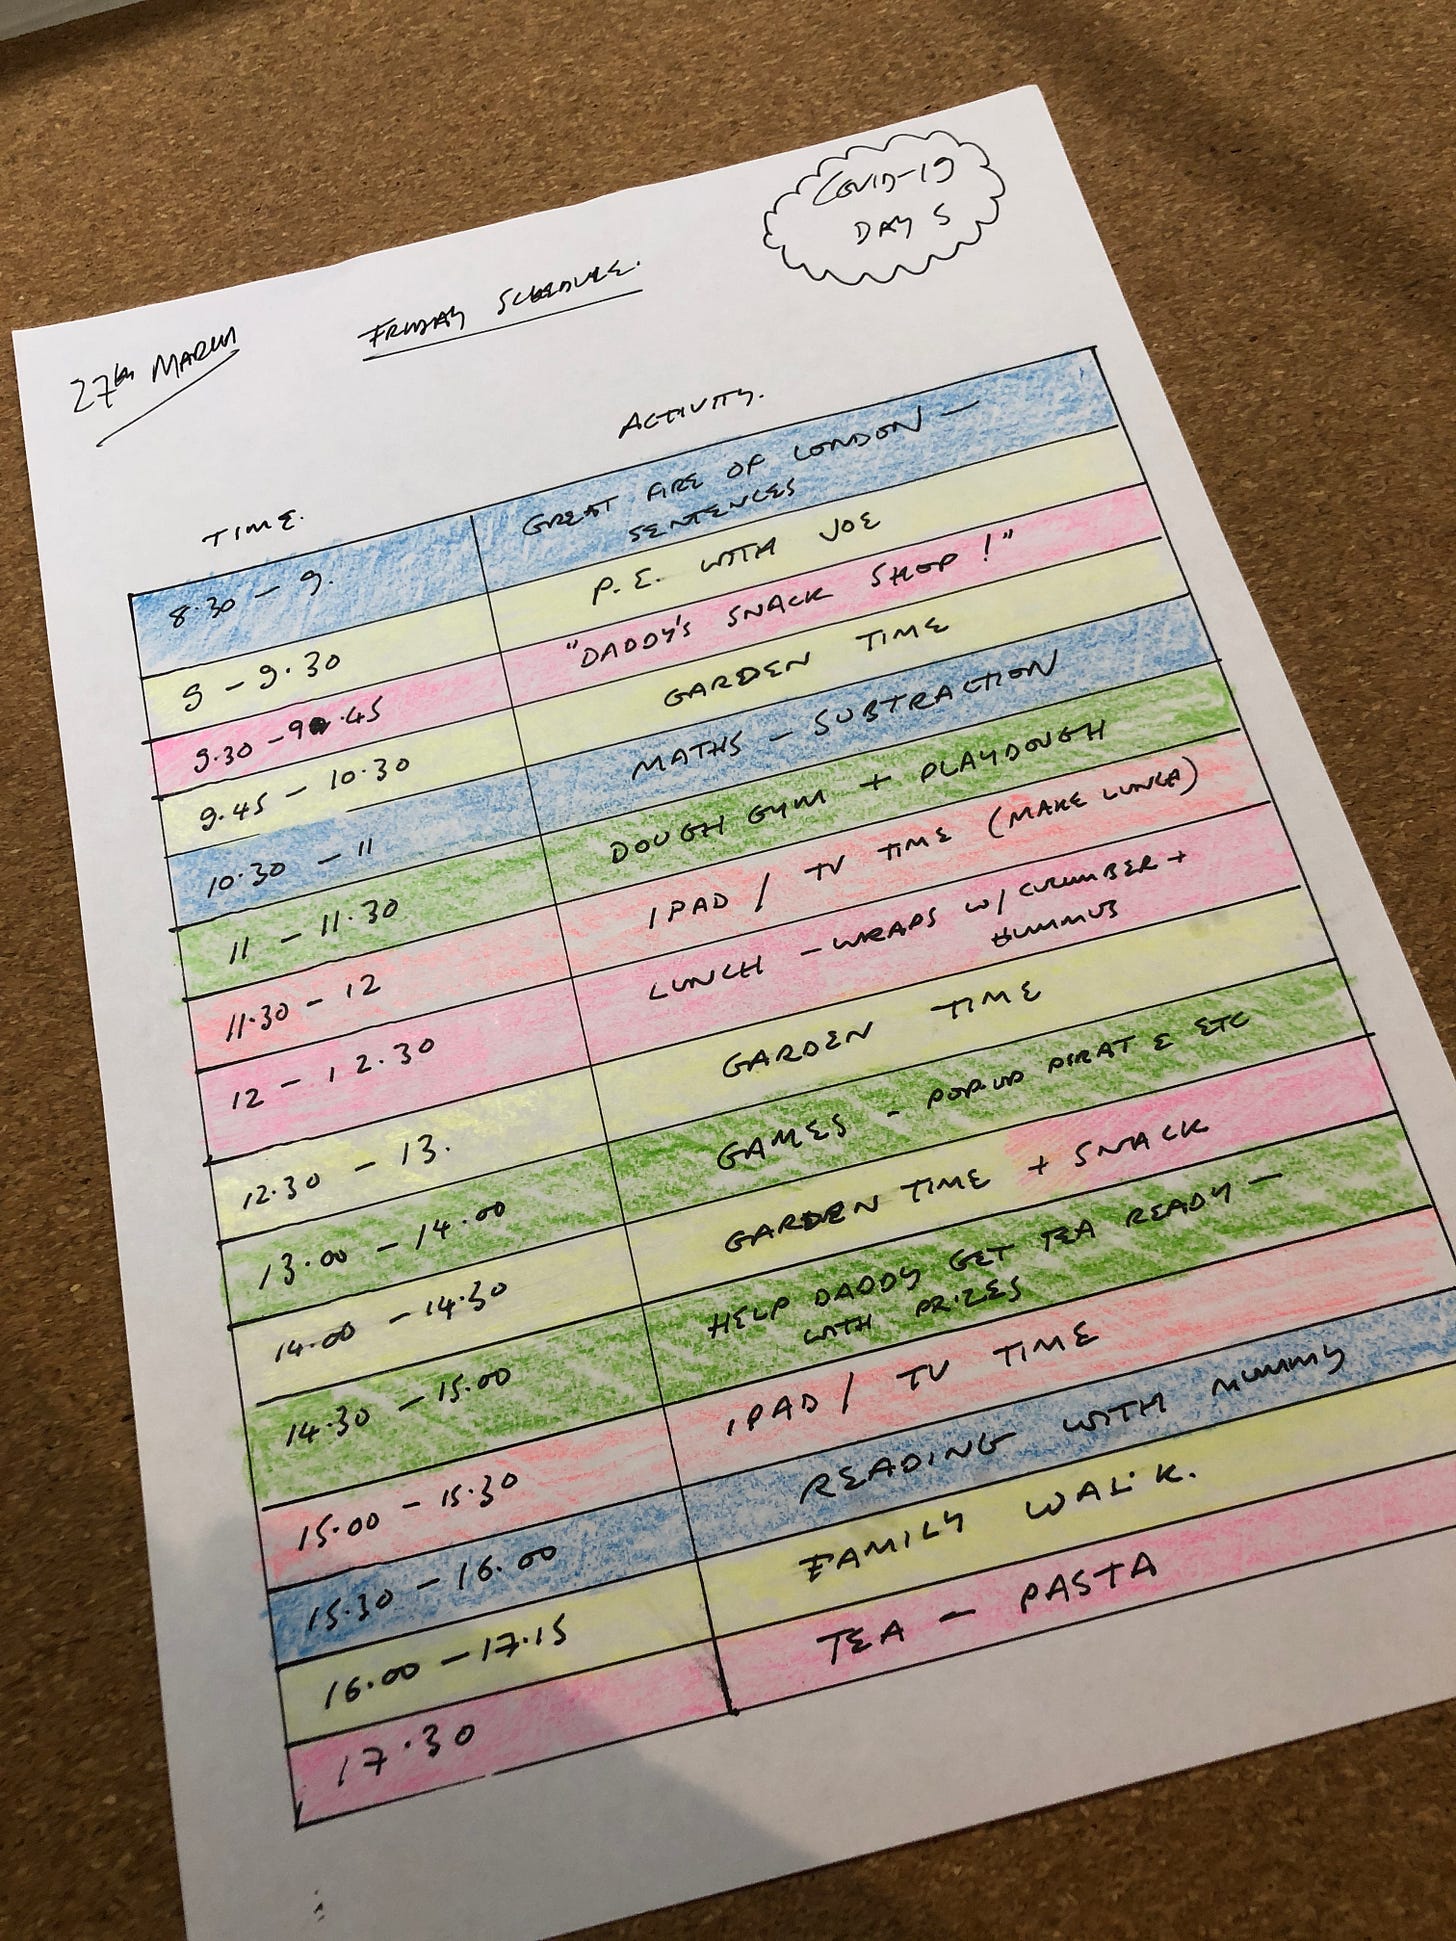 COVID-19
DAY 5
27th MARCH
FRIDAY SCHEDULE.
TIME.
ACTIVITY.
8.30 - 9.
GREAT FIRE OF LONDON -
SENTENCES
9 - 9.30
P.E. WITH JOE
9.30 - 9.45
"DADDY'S SNACK SHOP!"
9.45 - 10.30
GARDEN TIME
10.30 - 11
MATHS - SUBTRACTION
11 - 11.30
DOUGH GYM + PLAYDOUGH
11.30 - 12
IPAD / TV TIME (MAKE LUNCH)
12 - 12.30
LUNCH - WRAPS W/ CUCUMBER +
HUMMUS
12.30 - 13.
GARDEN TIME
13.00 - 14.00
GAMES - POP-UP PIRATE ETC
14.00 - 14.30
GARDEN TIME + SNACK
14.30 - 15.00
HELP DADDY GET TEA READY -
WITH PRIZES
15.00 - 15.30
IPAD / TV TIME
15.30 - 16.00
READING WITH MUMMY
16.00 - 17.15
FAMILY WALK.
17.30
TEA - PASTA